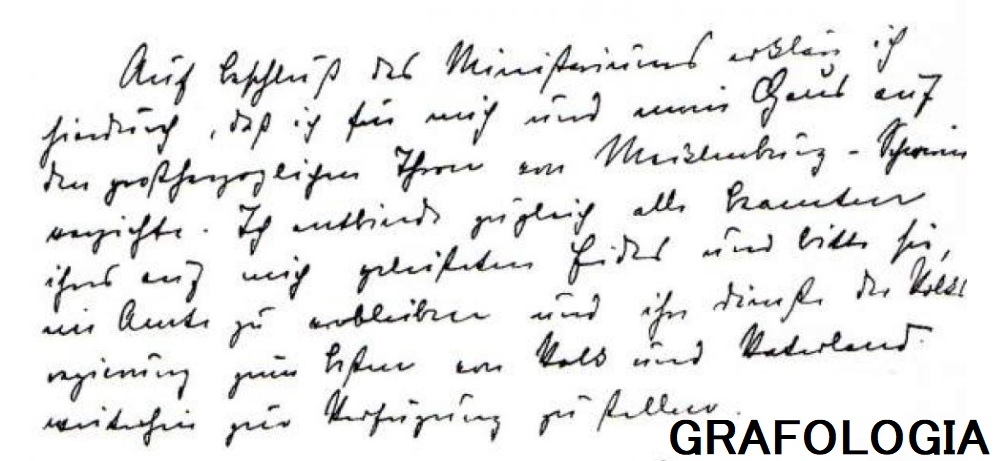 Auf Beschluß des Ministeriums erkläre ich
hierdurch, daß ich für mich und mein Haus auf
den großherzoglichen Thron von Mecklenburg-Schwerin
verzichte. Ich entbinde zugleich alle Beamten
ihres auf mich geleisteten Eides und bitte sie,
im Amte zu verbleiben und ihre Dienste der Volks
regierung zum Besten von Volk und Vaterland
weiterhin zur Verfügung zu stellen.
GRAFOLOGIA